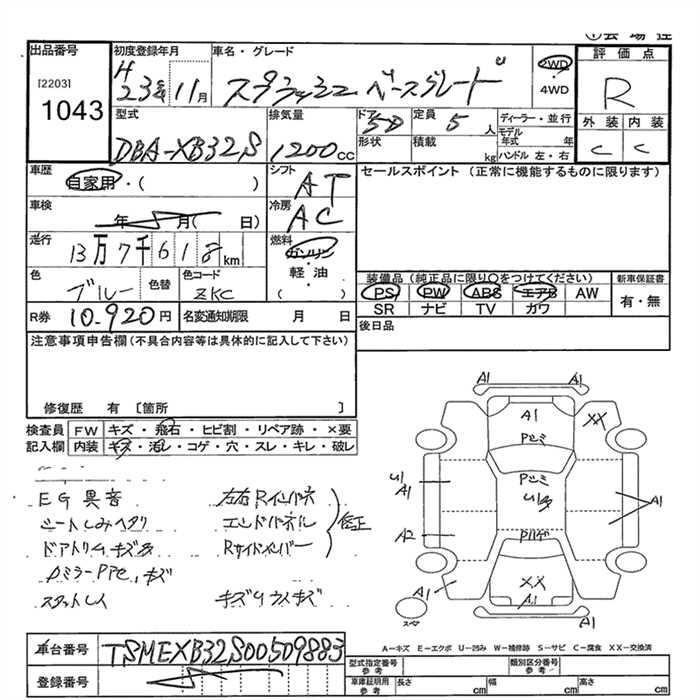 出品番号
[2203]
1043
初度登録年月
H 23年 11月
車名・グレード
スプラッシュ ベースグレード
2WD
・
4WD
評価点
R
型式
DBA-XB32S
排気量
1200cc
ドア
5D
形状
定員
5人
積載
kg
ディーラー・並行
モデル
年式 年
ハンドル 左・右
外装 内装
C C
車歴
自家用・( )
シフト
AT
セールスポイント (正常に機能するものに限ります)
車検
年 月( 日)
冷房
AC
走行
13万7千618km
燃料
ガソリン
・
軽油
( )
色
ブルー
色替
色コード
ZKC
装備品(純正品に限り○をつけてください)
PS PW ABS エアB AW
SR ナビ TV カワ
新車保証書
有・無
R券
10.920円
名変通知期限 月 日
後日品
注意事項申告欄(不具合内容等は具体的に記入して下さい)
修復歴 有 [箇所 ]
検査員
記入欄
FW キズ・飛石・ヒビ割・リペア跡・×要
内装 キズ・汚レ・コゲ・穴・スレ・キレ・破レ
EG異音
シートしみヘタリ
ドアトリムキズ多
スタットレス
左右Rインパネ
エンドパネル
Rサイドメンバー
修正
A1 A1
A1
XX
U1
A1
A1
A2
XX
A1
A1
スペア
A-キズ E-エクボ U-凹み W-補修跡 S-サビ C-腐食 XX-交換済
車台番号
TSMEXB32S00509883
登録番号
型式指定番号
参考
類別区分番号
参考
車庫証明用
参考
長さ cm
幅 cm
高さ cm